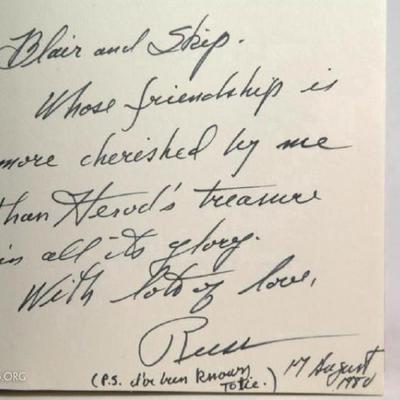 Blair and Skip.
Whose friendship is
more cherished by me
than Herod's treasure
in all its glory.
With lots of love,
Russ
(P.S. I've been known
to lie.)
17 August
1980
S.ORG